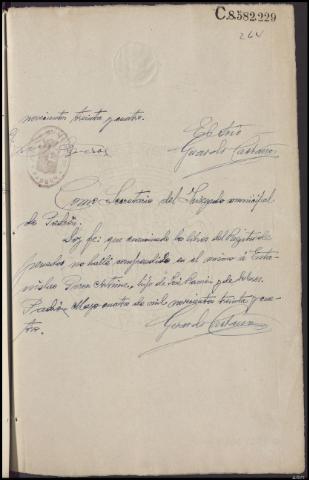 C.8.582.229
264
novecientos treinta y cuatro.
El Srio
Gerardo Castaño
Como Secretario del Juzgado municipal
de Padrón.
Doy fé: que examinado los libros del Registro de
penados no hallé comprendido en el mismo á Esta-
nislao hijo de José Ramón y de Dolores.
Padrón, Mayo cuatro de mil novecientos treinta y cua-
tro.
Gerardo Castaño